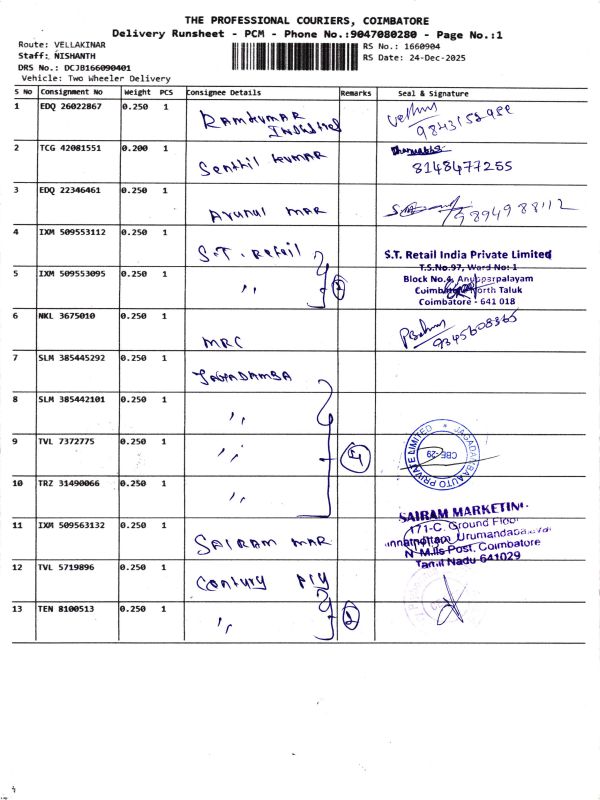 THE PROFESSIONAL COURIERS, COIMBATORE
Delivery Runsheet - PCM - Phone No.:9047080280 - Page No.:1
Route: VELLAKINAR
RS No.: 1660904
Staff: NISHANTH
RS Date: 24-Dec-2025
DRS No.: DCJB166090401
Vehicle: Two Wheeler Delivery
S No Consignment No Weight PCS Consignee Details Remarks Seal & Signature
1 EDQ 26022867 0.250 1 Ramkumar Industries
2 TCG 42081551 0.200 1 Senthil Kumar 8148477255
3 EDQ 22346461 0.250 1 Arunul mar 9894988112
4 IXM 509553112 0.250 1 S.T. Retail S.T. Retail India Private Limited
T.S.No.97, Ward No: 1
5 IXM 509553095 0.250 1 " 2 Block No.4, Anupparpalayam
Coimbatore North Taluk
Coimbatore - 641 018
6 NKL 3675010 0.250 1 MRC 9345608365
7 SLM 385445292 0.250 1 JAGADAMBA
8 SLM 385442101 0.250 1 "
9 TVL 7372775 0.250 1 " 4 JAGADAMBA AUTO PRIVATE LIMITED
CBE-29
10 TRZ 31490066 0.250 1 "
11 IXM 509563132 0.250 1 SAIRAM MAR SAIRAM MARKETIN
171-C, Ground Floor
Urumandaba
N Mills Post, Coimbatore
Tamil Nadu-641029
12 TVL 5719896 0.250 1 Century Ply
13 TEN 8100513 0.250 1 " 2